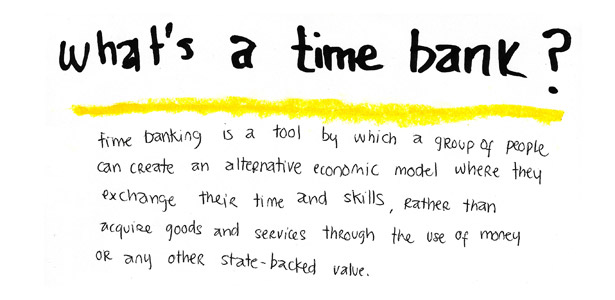 what's a time bank?
time banking is a tool by which a group of people
can create an alternative economic model where they
exchange their time and skills, rather than
acquire goods and services through the use of money
or any other state-backed value.